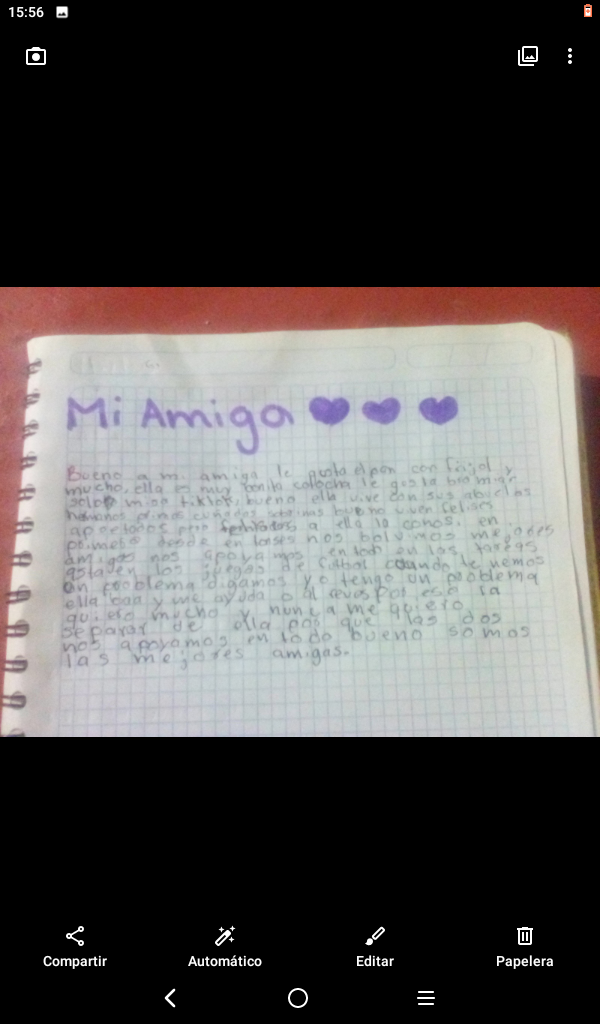 15:56
Mi Amiga
Bueno a mi amiga le gusta el pan con frijol y
mucho, ella es muy bonita colocha le gusta bromiar
solo mirao tiktos, bueno ella vive con sus abuelos
hermanos primos cuñados sobrinas bueno viven felices
apartados pero a ella la conosi en
primero desde entonses nos bolvimos mejores
amigas nos apoyamos en todo en las tareas
asta en los juegos de futbol cuando tenemos
un problema digamos yo tengo un problema
ella baa y me ayuda o al reves por eso la
quiero mucho y nunca me quiero
separar de ella por que las dos
nos apoyamos en todo bueno somos
las mejores amigas.
Compartir
Automático
Editar
Papelera